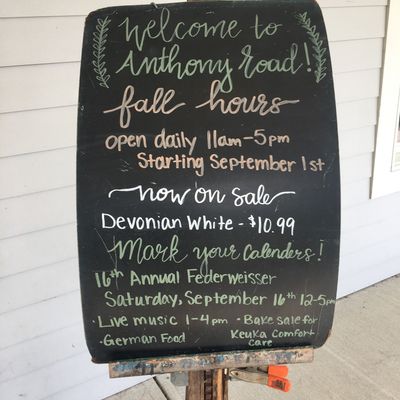 Welcome to
Anthony Road!
fall hours
open daily 11am-5pm
Starting September 1st
now on sale
Devonian White - $10.99
Mark your Calenders!
16th Annual Federweisser
Saturday, September 16th 12-5pm
· Live music 1-4pm · Bake sale for
· German Food Keuka Comfort
Care